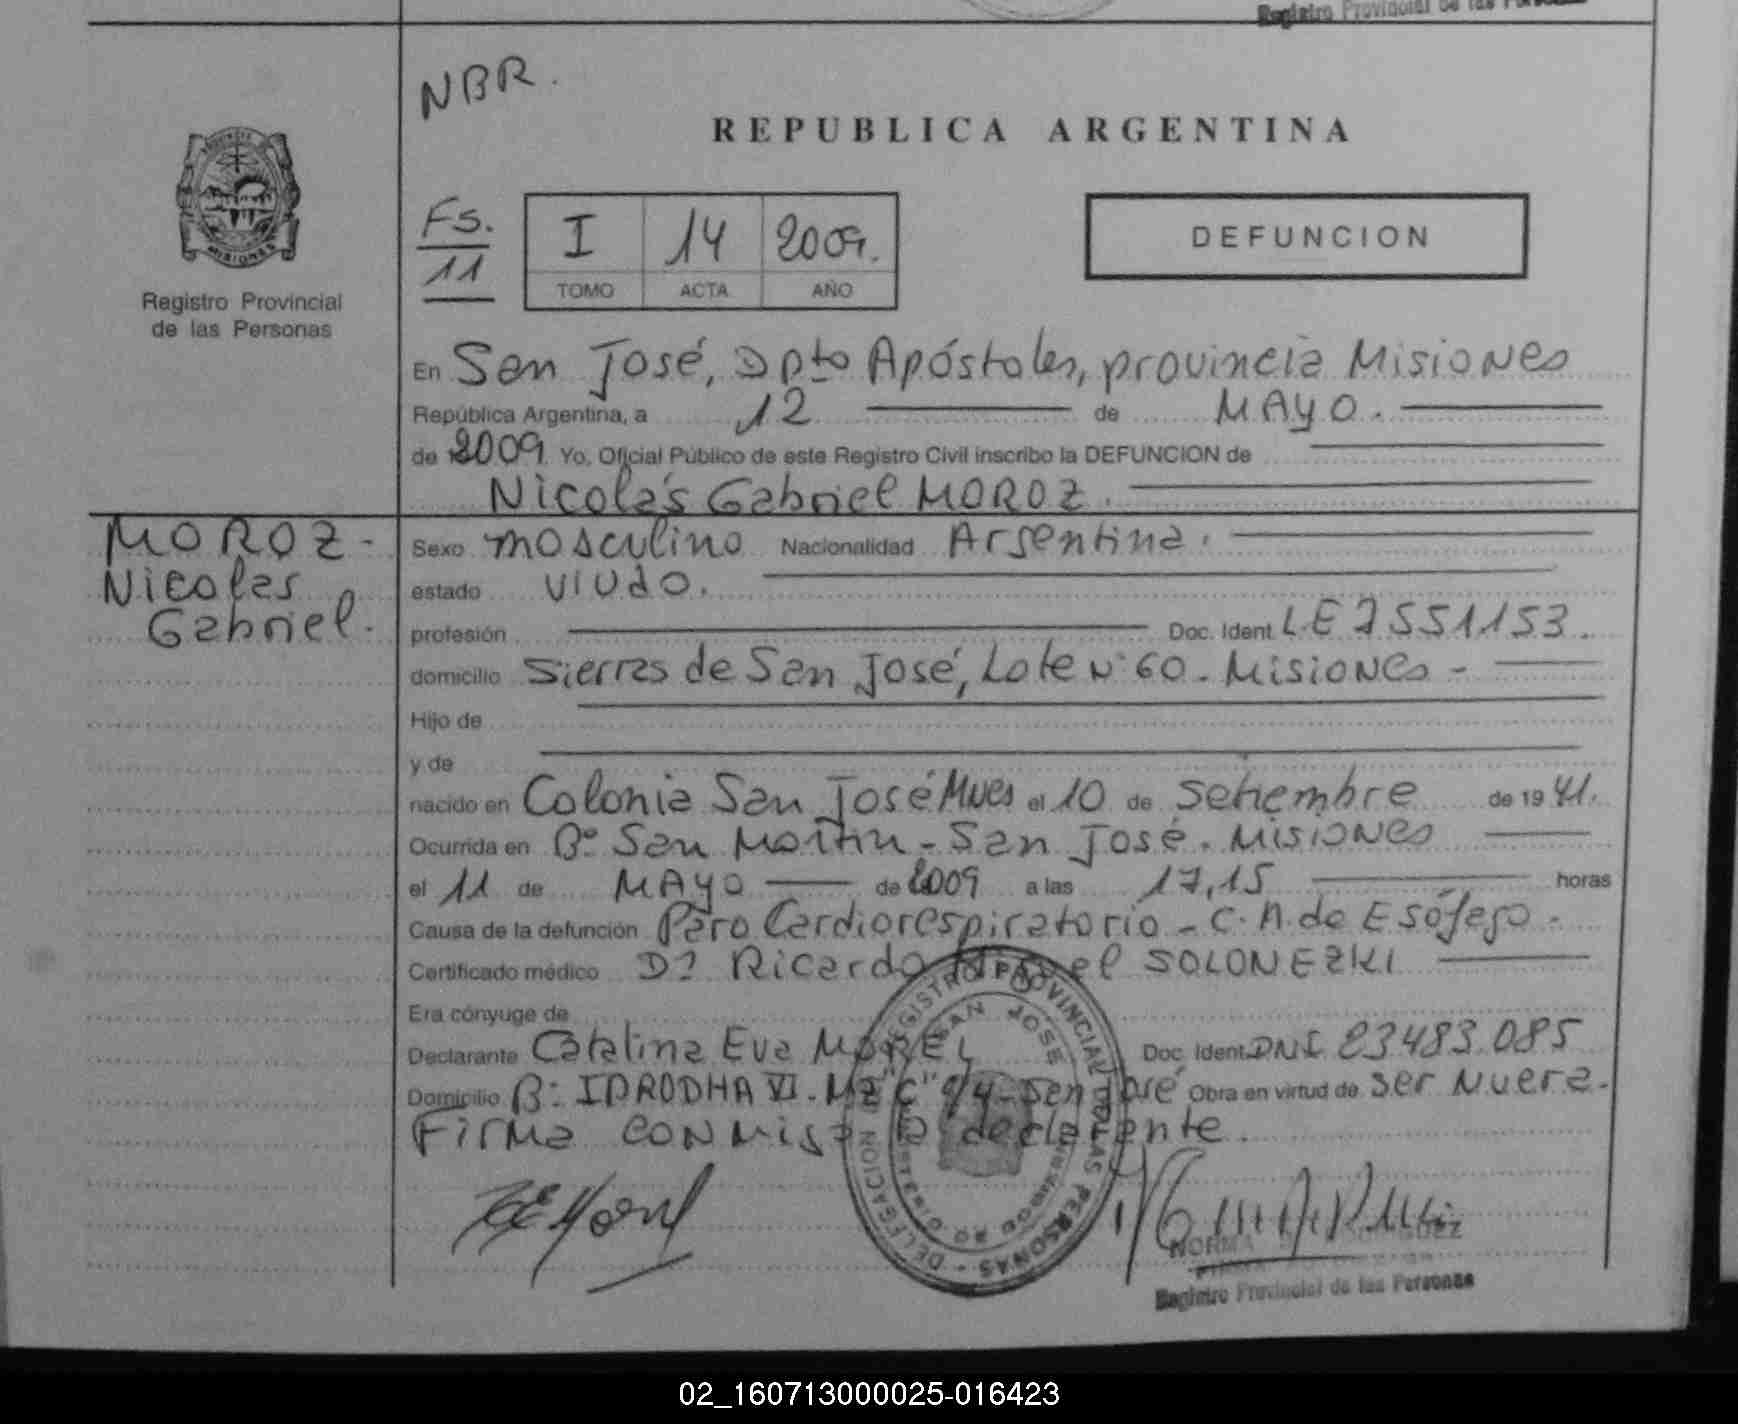 Registro Provincial de las Personas
NBR.
REPUBLICA ARGENTINA
PROVINCIA
MISIONES
Registro Provincial
de las Personas
Fs.
11
I 14 2009.
TOMO ACTA AÑO
DEFUNCION
En San José, Dpto Apóstoles, provincia Misiones
República Argentina, a 12 de MAYO.
de 2009 Yo, Oficial Público de este Registro Civil inscribo la DEFUNCION de
Nicolás Gabriel MOROZ.
MOROZ-
Nicolas
Gabriel.
Sexo masculino Nacionalidad Argentina.
estado viudo.
profesión Doc. Ident. LE 7551153.
domicilio Sierras de San José, Lote Nº 60 - Misiones -
Hijo de
y de
nacido en Colonia San José Mnes el 10 de Setiembre de 1941.
Ocurrida en Bº San Martin - San José. Misiones
el 11 de MAYO de 2009 a las 17,15 horas
Causa de la defunción Paro Cardiorespiratorio - C.A. de Esófago -
Certificado médico Dr Ricardo SOLONEZKI
Era cónyuge de
Declarante Catalina Eva MOREL Doc. Ident. DNI. 23483.085
Domicilio Bº IPRODHA VI - Mz "C" - San José Obra en virtud de ser Nuera.
Firma conmigo la declarante.
REGISTRO PROVINCIAL DE LAS PERSONAS - DELEGACION
SAN JOSE
NORMA
Registro Provincial de las Personas
02_160713000025-016423